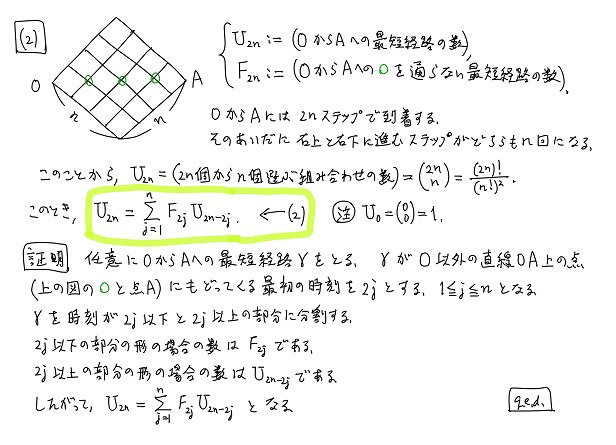 (2)
O
A
n
n
U₂ₙ := (OからAへの最短経路の数),
F₂ₙ := (OからAへの○を通らない最短経路の数).
OからAには2nステップで到着する.
そのあいだに右上と右下に進むステップがどちらもn回になる.
このことから, U₂ₙ = (2n個からn個選ぶ組み合わせの数) = (2n n) = (2n)!/(n!)².
このとき, U₂ₙ = Σⁿⱼ₌₁ F₂ⱼ U₂ₙ₋₂ⱼ. ←(2) 注 U₀ = (0 0) = 1.
証明 任意にOからAへの最短経路γをとる. γがO以外の直線OA上の点
(上の図の○と点A)にもどってくる最初の時刻を2jとする. 1≦j≦nとなる
γを時刻が2j以下と2j以上の部分に分割する.
2j以下の部分の形の場合の数はF₂ⱼである.
2j以上の部分の形の場合の数はU₂ₙ₋₂ⱼである
したがって, U₂ₙ = Σⁿⱼ₌₁ F₂ⱼ U₂ₙ₋₂ⱼ となる
q.e.d.